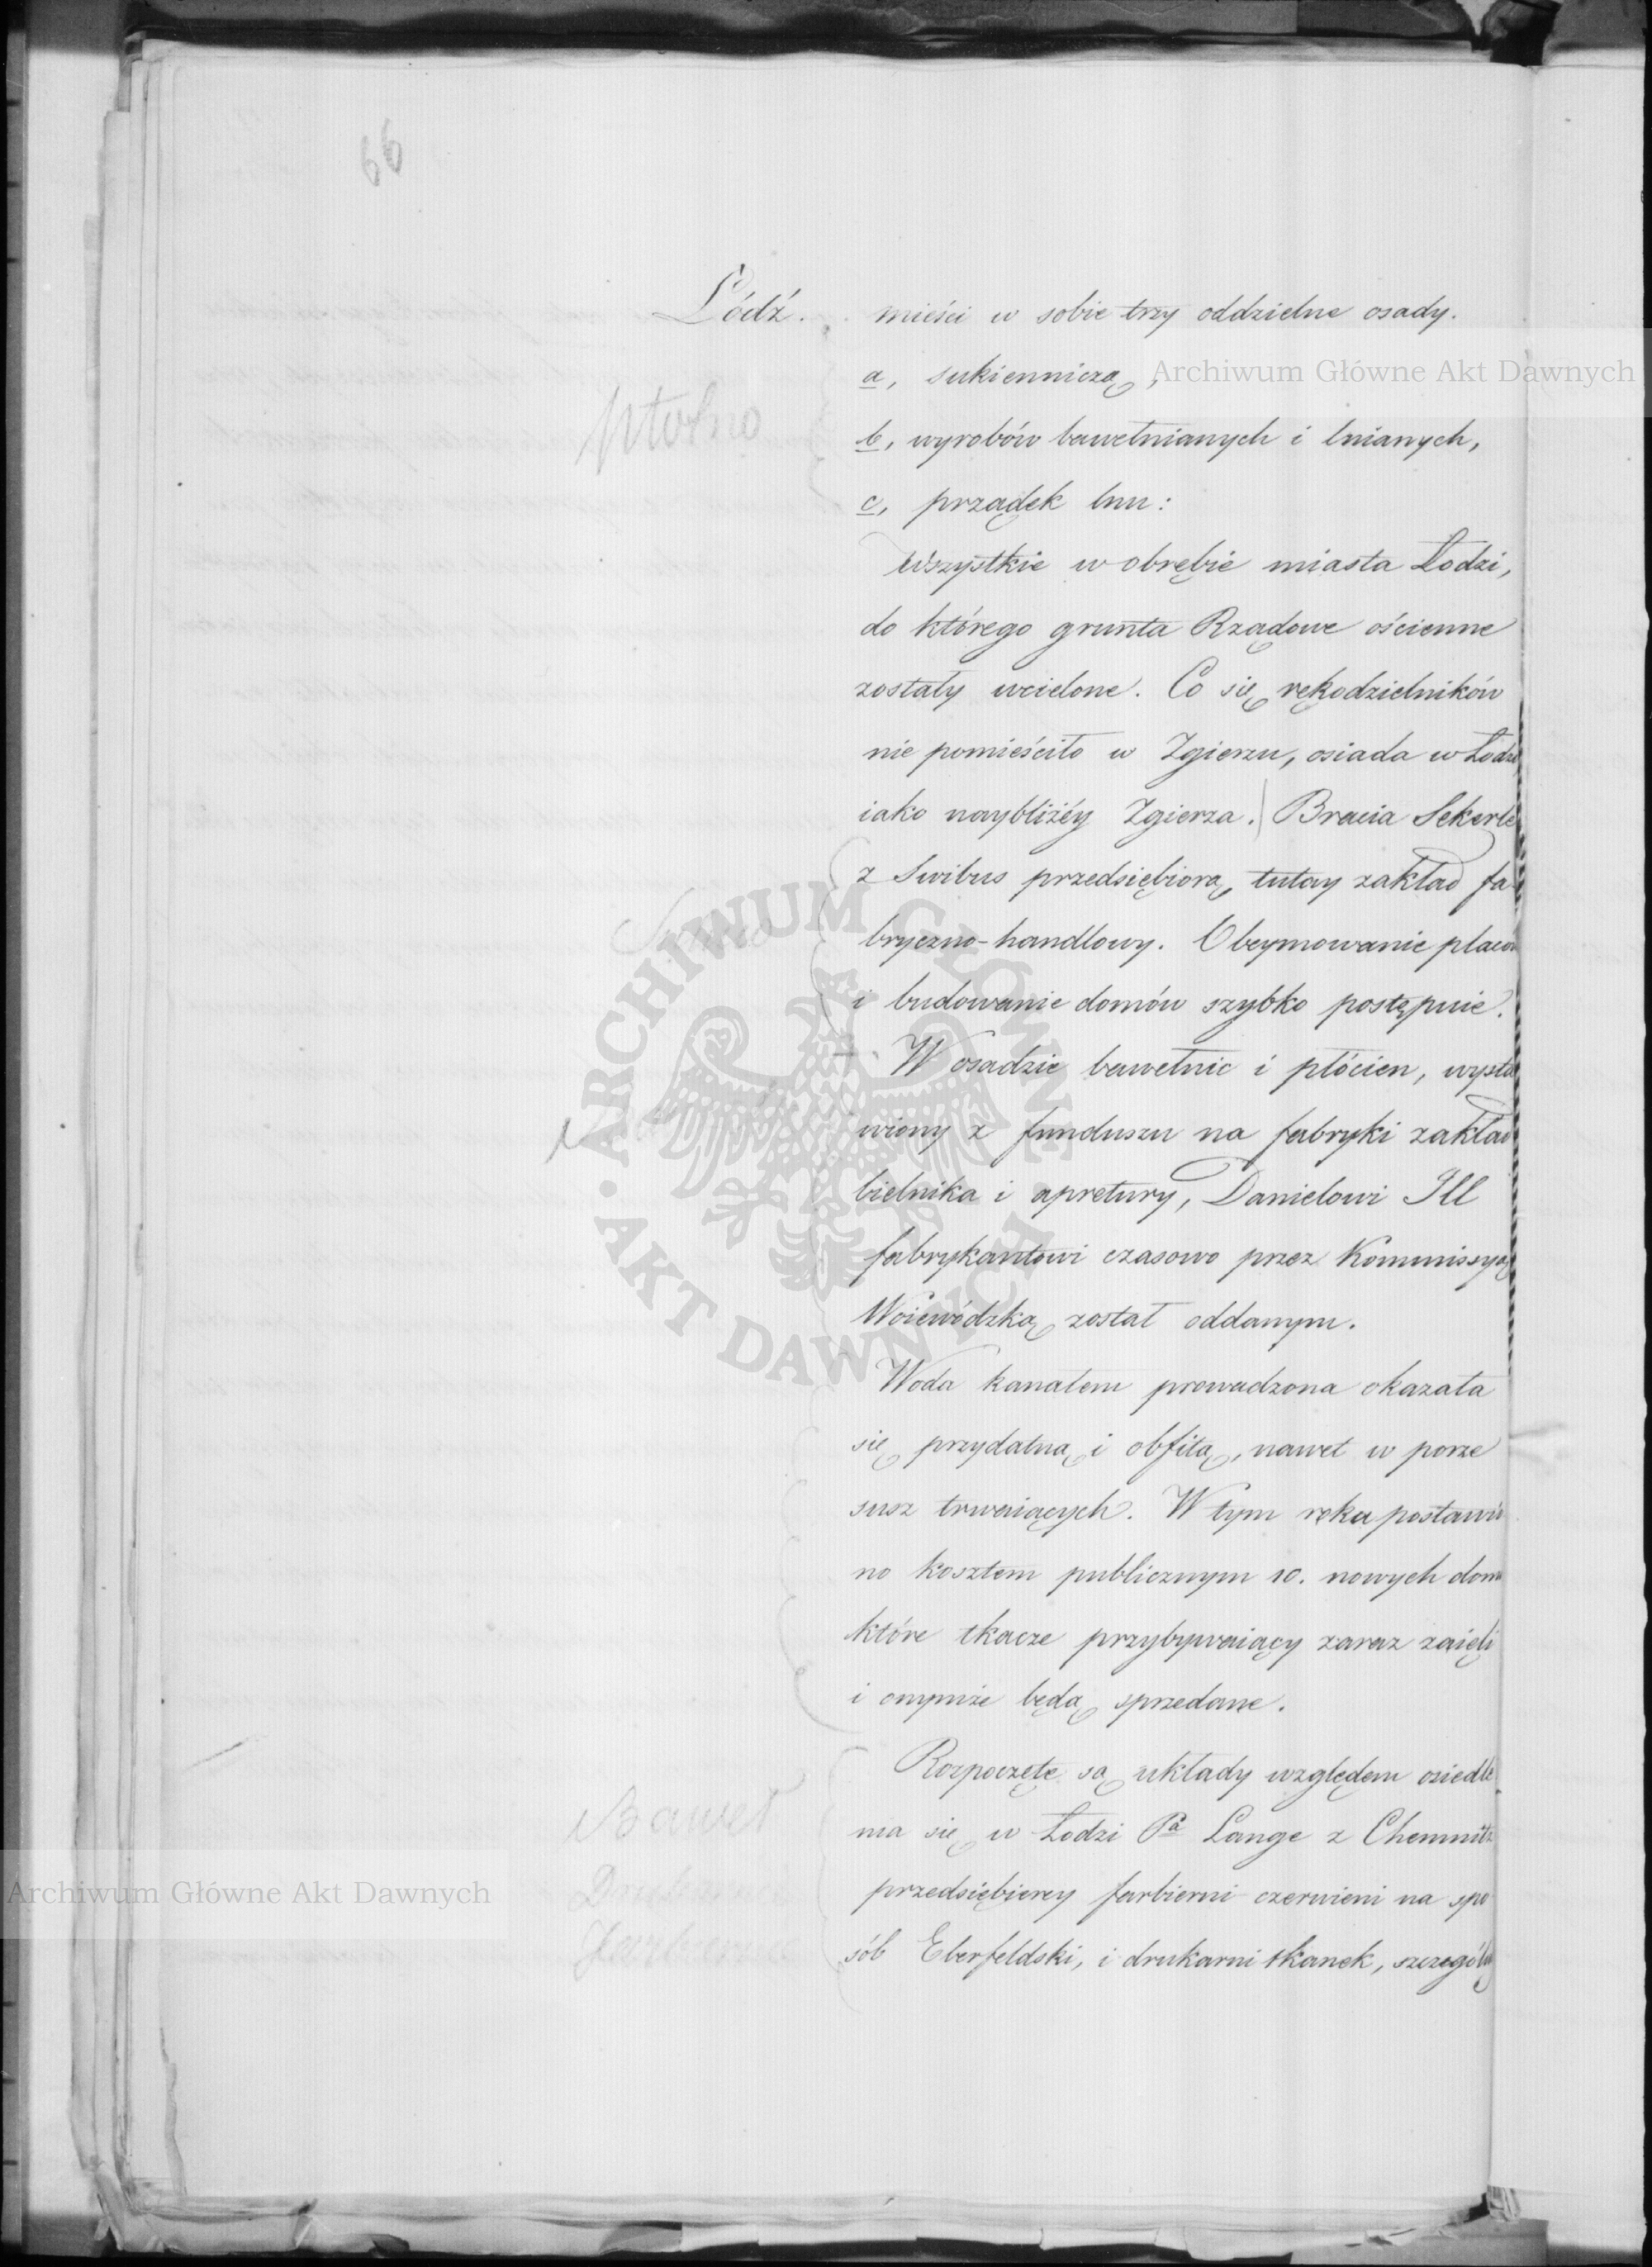 66
Łódź. mieści w sobie trzy oddzielne osady.
a, sukienniczą,
Archiwum Główne Akt Dawnych
płotno
b, wyrobów bawełnianych i lnianych,
c, prządek lnu:
Wszystkie w obrębie miasta Łodzi,
do którego grunta Rządowe ościenne
zostały wcielone. Co się rękodzielników
nie pomieściło w Zgierzu, osiada w Łodzi
iako naybliżéy Zgierza. Bracia Sekerle
z Swibus przedsiębiorą tutay zakład fa-
bryczno-handlowy. Obeymowanie placów
i budowanie domów szybko postępuie.
W osadzie bawełnic i płócien, wysta
wiony z funduszu na fabryki zakład
bielnika i apretury, Danielowi Ill
fabrykantowi czasowo przez Kommissyą
Woiewódzką został oddanym.
Woda kanałem prowadzona okazała
się przydatną i obfitą, nawet w porze
susz trwaiących. W tym roku postawio
no kosztem publicznym 10. nowych dom
które tkacze przybywaiący zaraz zaięli
i onymże będą sprzedane.
Rozpoczęte są układy względem osiedle
nia się w Łodzi Pa Lange z Chemnitz
przedsiębiercy farbierni czerwieni na spo
sób Eberfeldski, i drukarni tkanek, szczegóły
Baweł
Drukarnia
Farbiernia
Archiwum Główne Akt Dawnych
ARCHIWUM GŁÓWNE AKT DAWNYCH